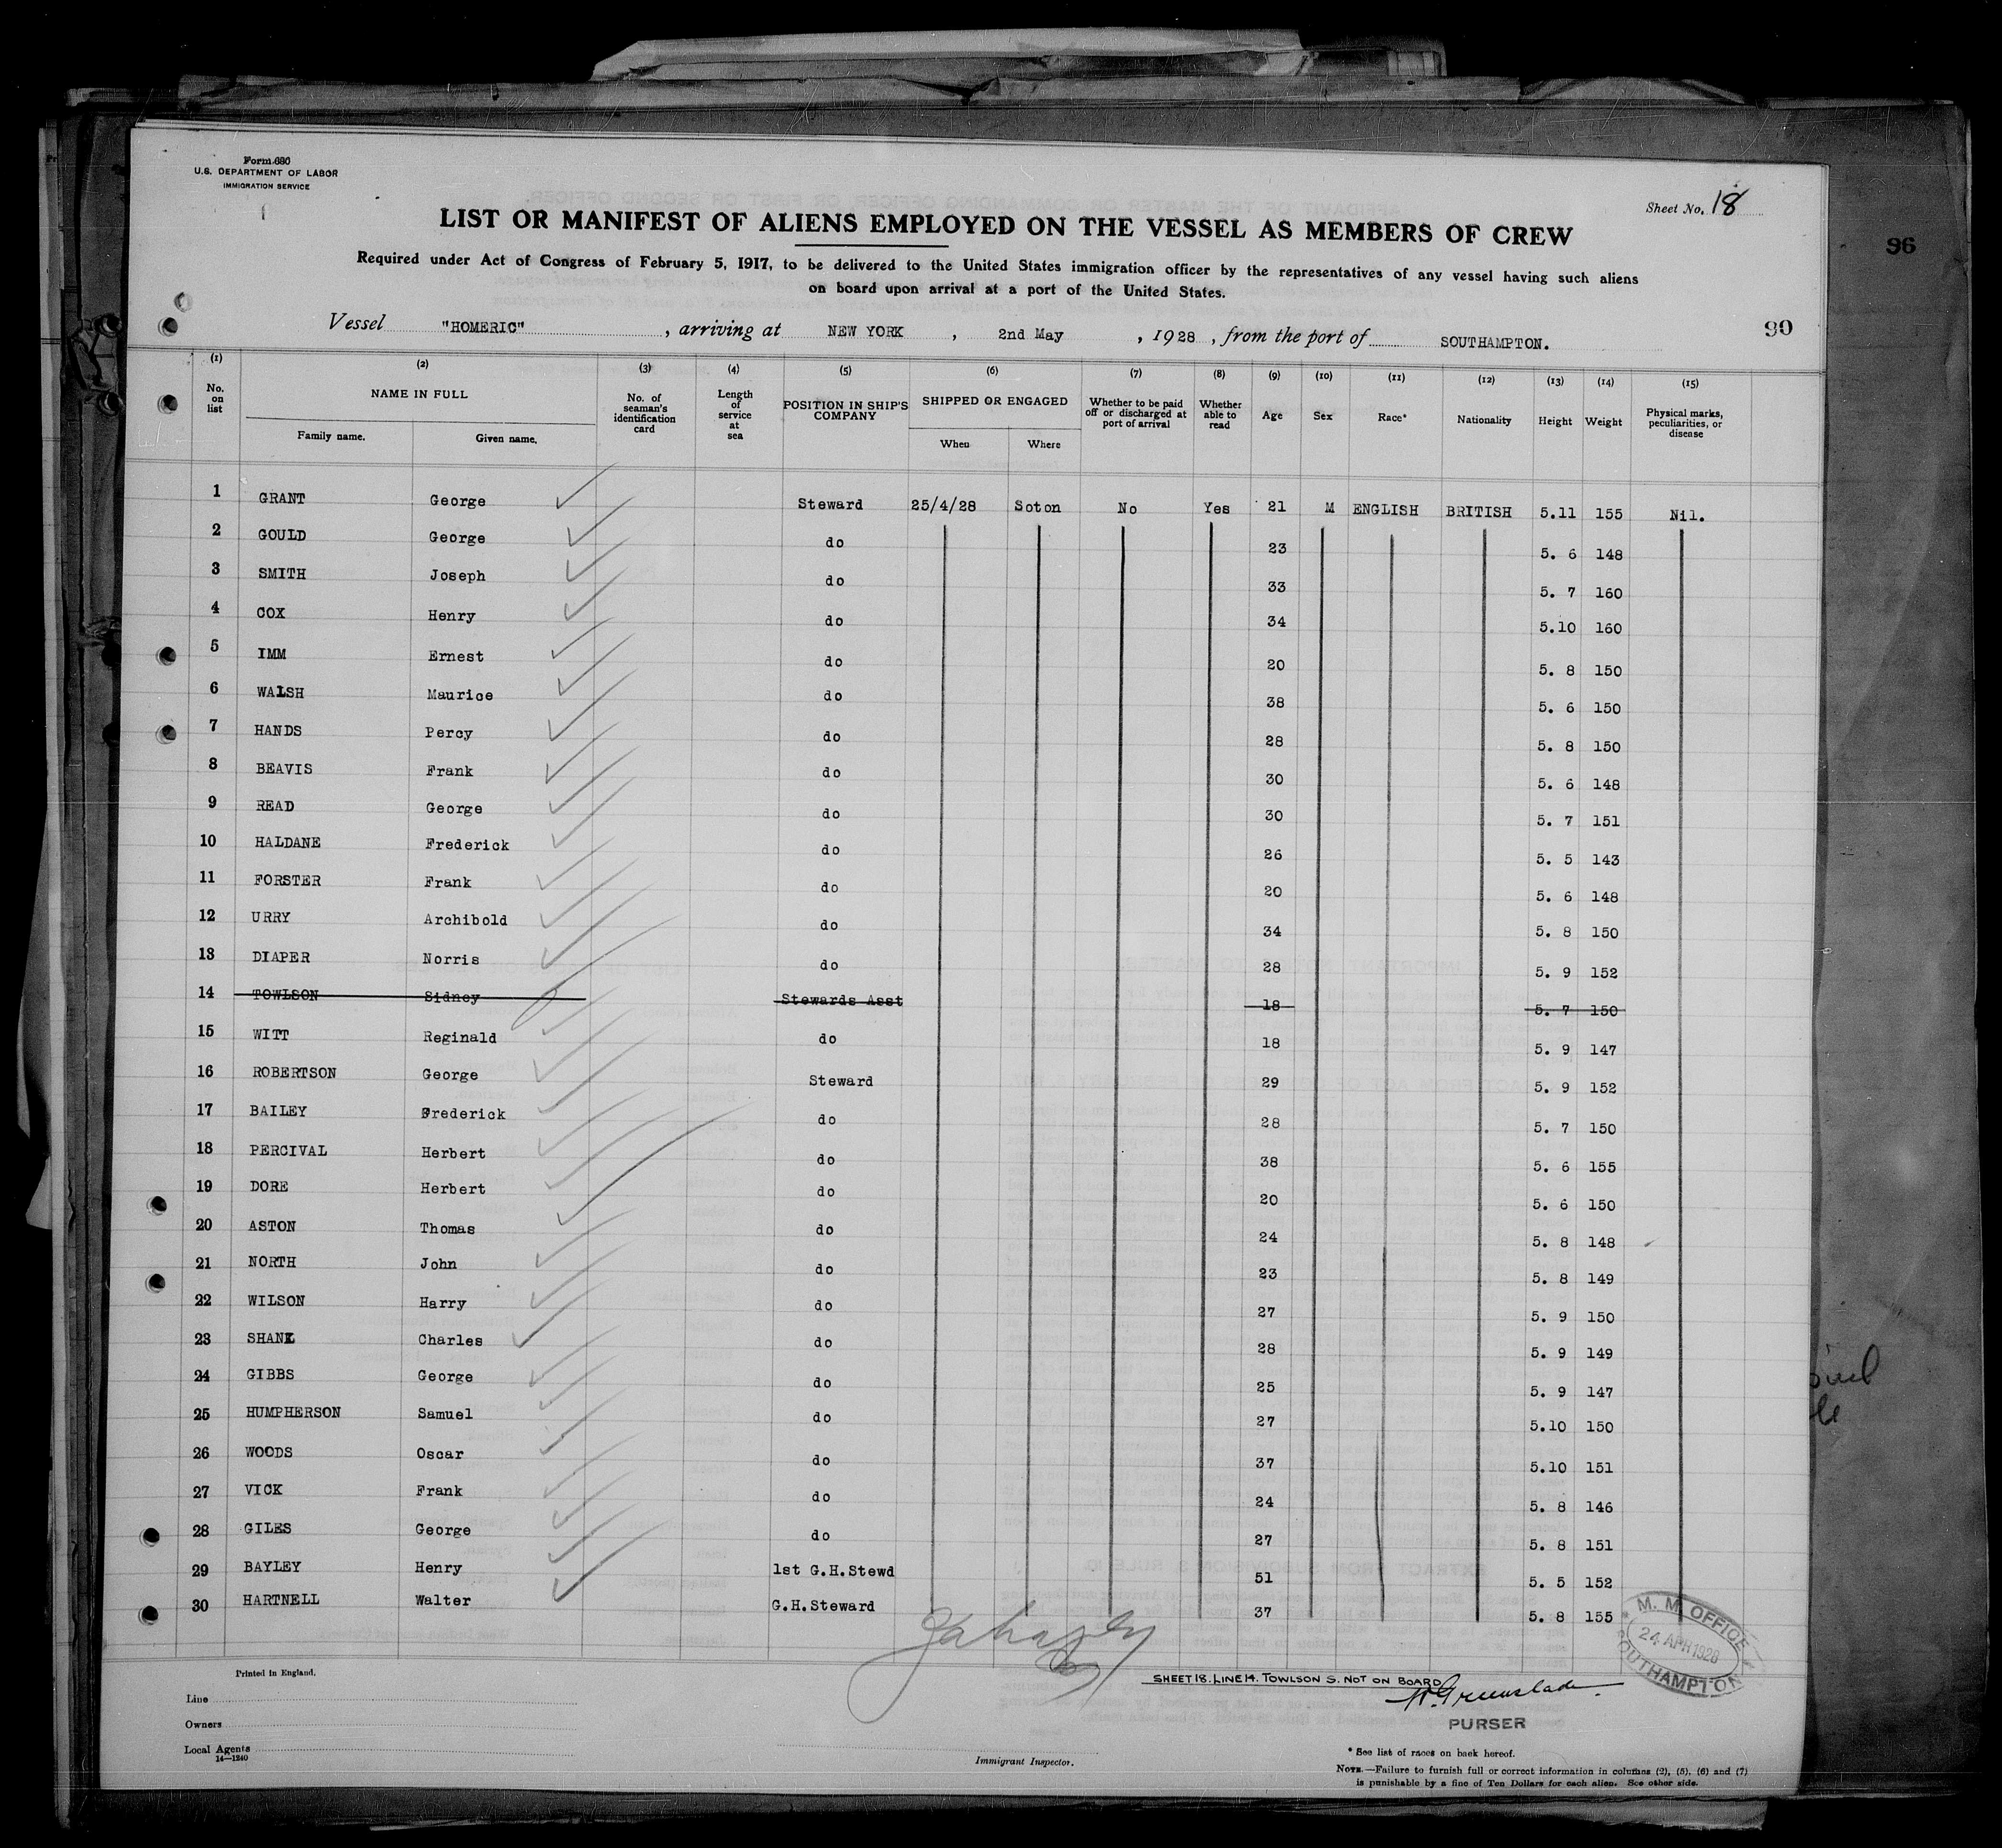 Form 680
U.S. DEPARTMENT OF LABOR
IMMIGRATION SERVICE
Sheet No. 18
96
LIST OR MANIFEST OF ALIENS EMPLOYED ON THE VESSEL AS MEMBERS OF CREW
Required under Act of Congress of February 5, 1917, to be delivered to the United States immigration officer by the representatives of any vessel having such aliens
on board upon arrival at a port of the United States.
Vessel "HOMERIC", arriving at NEW YORK, 2nd May, 1928, from the port of SOUTHAMPTON.
90
(1) No. on list (2) NAME IN FULL Family name. Given name. (3) No. of seaman's identification card (4) Length of service at sea (5) POSITION IN SHIP'S COMPANY (6) SHIPPED OR ENGAGED When Where (7) Whether to be paid off or discharged at port of arrival (8) Whether able to read (9) Age (10) Sex (11) Race* (12) Nationality (13) Height (14) Weight (15) Physical marks, peculiarities, or disease
1 GRANT George Steward 25/4/28 Soton No Yes 21 M ENGLISH BRITISH 5.11 155 Nil.
2 GOULD George do 23 5. 6 148
3 SMITH Joseph do 33 5. 7 160
4 COX Henry do 34 5.10 160
5 IMM Ernest do 20 5. 8 150
6 WALSH Maurice do 38 5. 6 150
7 HANDS Percy do 28 5. 8 150
8 BEAVIS Frank do 30 5. 6 148
9 READ George do 30 5. 7 151
10 HALDANE Frederick do 26 5. 5 143
11 FORSTER Frank do 20 5. 6 148
12 URRY Archibold do 34 5. 8 150
13 DIAPER Norris do 28 5. 9 152
14 TOWLSON Sidney Stewards Asst 18 5. 7 150
15 WITT Reginald do 18 5. 9 147
16 ROBERTSON George Steward 29 5. 9 152
17 BAILEY Frederick do 28 5. 7 150
18 PERCIVAL Herbert do 38 5. 6 155
19 DORE Herbert do 20 5. 6 150
20 ASTON Thomas do 24 5. 8 148
21 NORTH John do 23 5. 8 149
22 WILSON Harry do 27 5. 9 150
23 SHANK Charles do 28 5. 9 149
24 GIBBS George do 25 5. 9 147
25 HUMPHERSON Samuel do 27 5.10 150
26 WOODS Oscar do 37 5.10 151
27 VICK Frank do 24 5. 8 146
28 GILES George do 27 5. 8 151
29 BAYLEY Henry 1st G.H.Stewd 51 5. 5 152
30 HARTNELL Walter G.H.Steward 37 5. 8 155
M. M. OFFICE
24 APR 1928
SOUTHAMPTON
Printed in England.
SHEET 18. LINE 14. TOWLSON S. NOT ON BOARD
W. Greenslade
PURSER
Line
Owners
Local Agents
14—1240
Immigrant Inspector.
* See list of races on back hereof.
NOTE.—Failure to furnish full or correct information in columns (2), (5), (6) and (7)
is punishable by a fine of Ten Dollars for each alien. See other side.